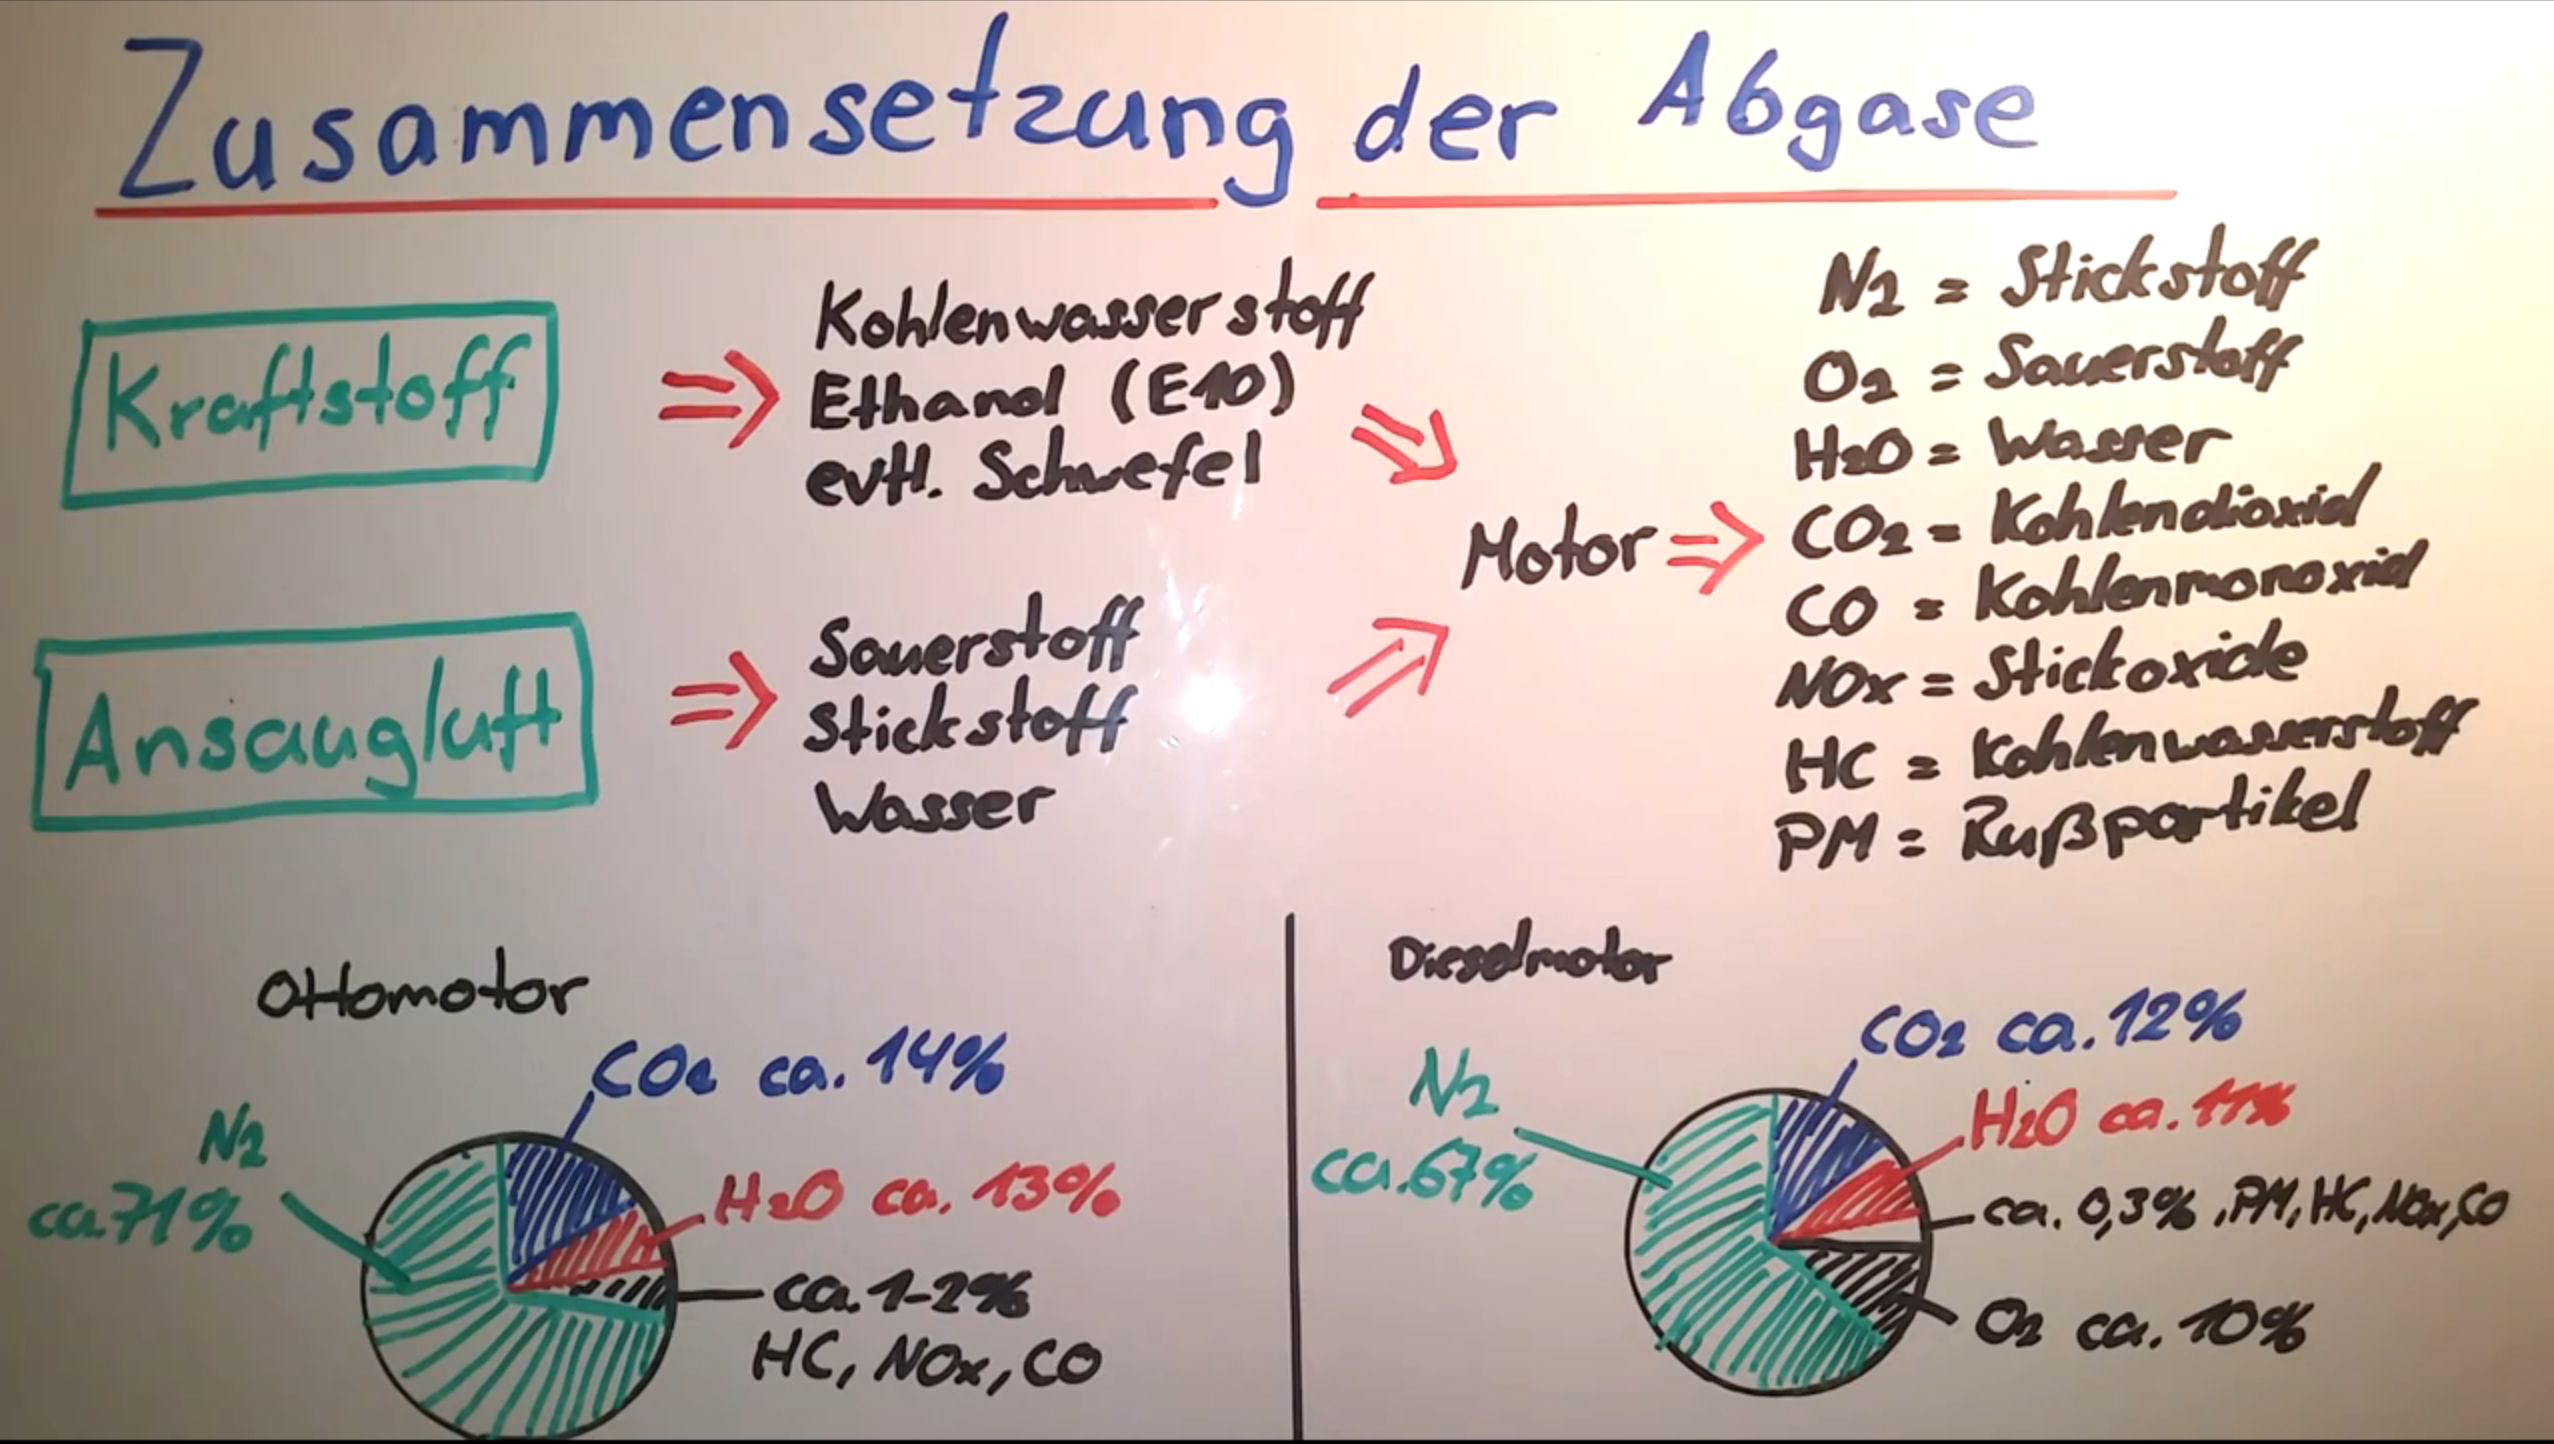 Zusammensetzung der Abgase
Kraftstoff
Kohlenwasserstoff
Ethanol (E10)
evtl. Schwefel
Ansaugluft
Sauerstoff
Stickstoff
Wasser
Motor
N2 = Stickstoff
O2 = Sauerstoff
H2O = Wasser
CO2 = Kohlendioxid
CO = Kohlenmonoxid
NOx = Stickoxide
HC = Kohlenwasserstoff
PM = Rußpartikel
Ottomotor
CO2 ca. 14%
N2
ca. 71%
H2O ca. 13%
ca. 1-2%
HC, NOx, CO
Dieselmotor
CO2 ca. 12%
N2
ca. 67%
H2O ca. 11%
ca. 0,3% , PM, HC, NOx, CO
O2 ca. 10%